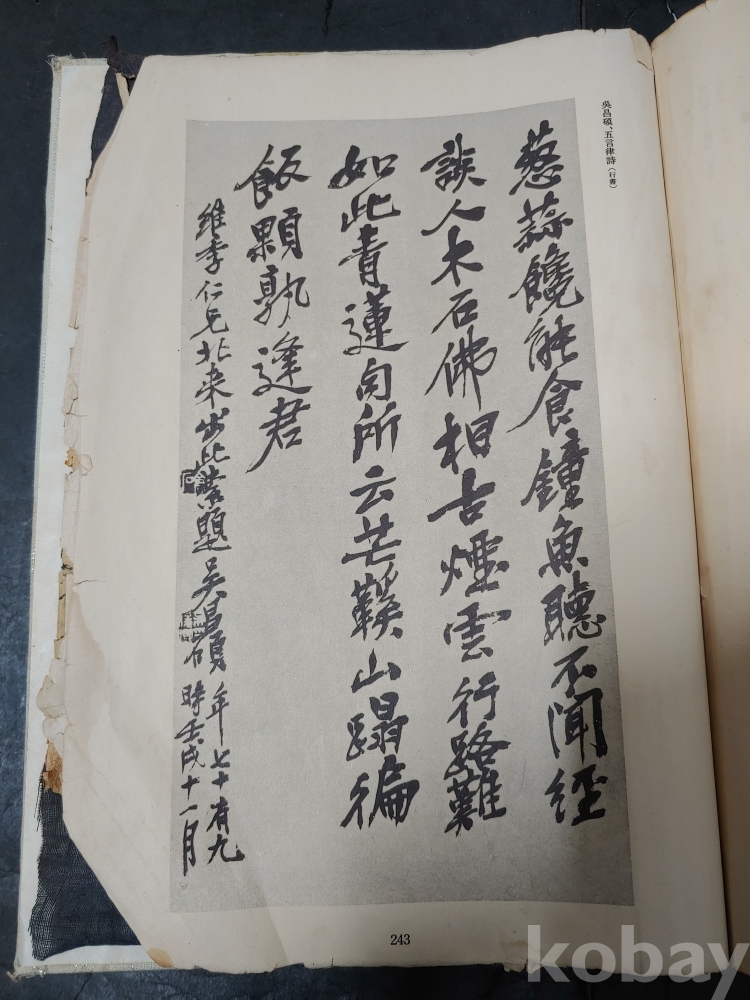 吳昌碩、五言律詩（行書）
葱蒜饞能食鐘魚聽不聞經
談人木石佛相古煙雲行路難
如此青蓮句所云芒鞵山蹋徧
飯顆孰逢君
維季仁兄北來出此索題吳昌碩年七十有九
時壬戌十一月
243
kobay